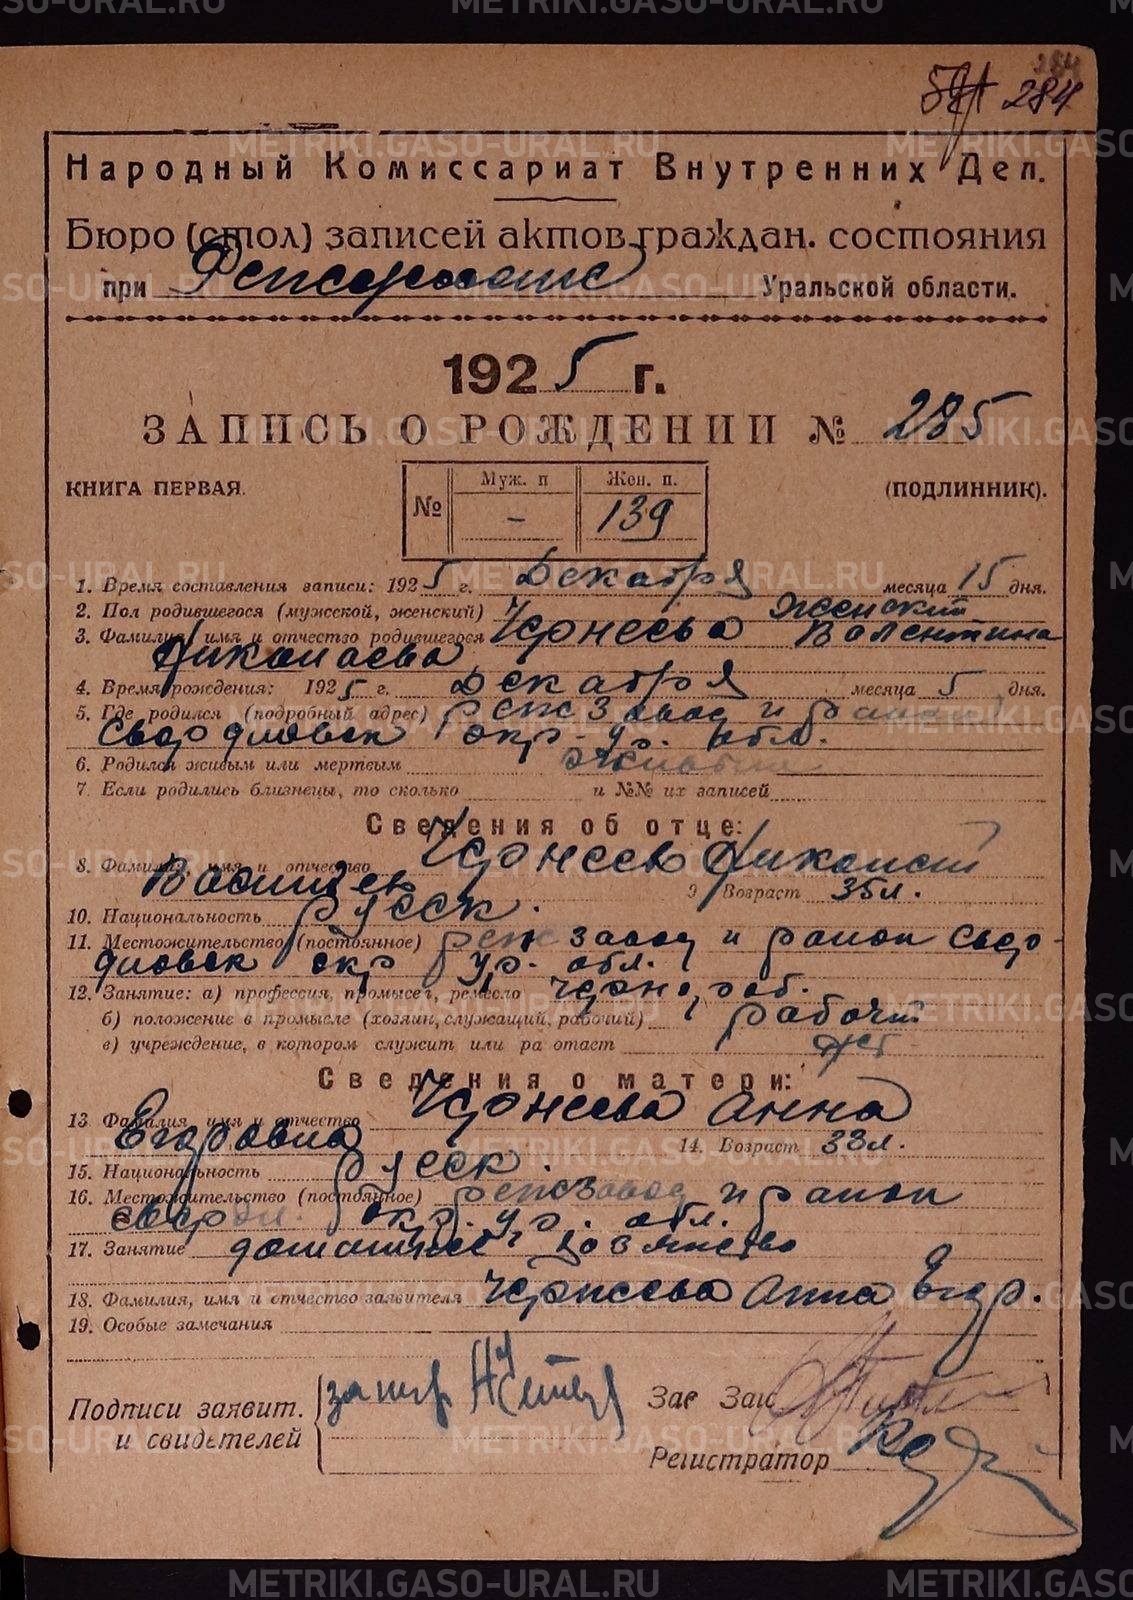 284
284
Народный Комиссариат Внутренних Дел.
Бюро (стол) записей актов граждан. состояния
при Уральской области.
1925 г.
ЗАПИСЬ О РОЖДЕНИИ № 285
КНИГА ПЕРВАЯ. (ПОДЛИННИК).
№ Муж. п Жен. п.
- 139
1. Время составления записи: 1925 г. Декабря месяца 15 дня.
2. Пол родившегося (мужской, женский) Женский
3. Фамилия, имя и отчество родившегося Чернеева Валентина
Николаева
4. Время рождения: 1925 г. Декабря месяца 5 дня.
5. Где родился (подробный адрес) Режзавод и район
Свердловск окр. ур. обл.
6. Родился живым или мертвым Живым
7. Если родились близнецы, то сколько и №№ их записей
Сведения об отце:
8. Фамилия, имя и отчество Чернеев Николай
Васильев 9 Возраст 35 л.
10. Национальность русск.
11. Местожительство (постоянное) Режзавод и район Свер-
дловск окр ур. обл.
12. Занятие: а) профессия, промысел, ремесло чернораб.
б) положение в промысле (хозяин, служащий, рабочий) рабочий
в) учреждение, в котором служит или ра отает
Сведения о матери:
13 Фамилия, имя и отчество Чернеева Анна
Егоровна 14. Возраст 33 л.
15. Национальность русск.
16. Местожительство (постоянное) Режзавод и район
свердл. окр. ур. обл.
17. Занятие домашнее хозяйство
18. Фамилия, имя и отчество заявителя Чернеева Анна Егор.
19. Особые замечания
Подписи заявит.
и свидетелей
Зав Заг
Регистратор
METRIKI.GASO-URAL.RU